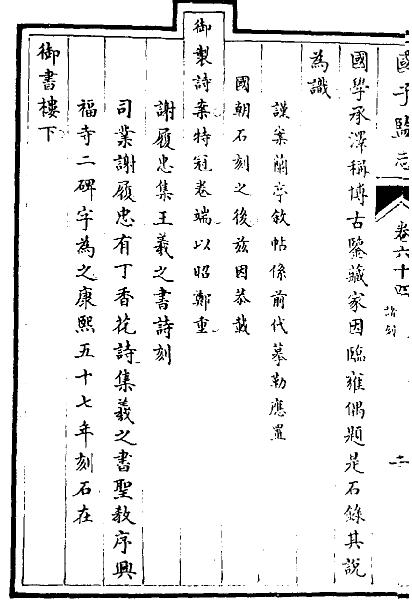 國子監志
卷六十四
國學承澤稱博古鑒藏家因臨雍偶題是石錄其說
為識
謹案蘭亭敘帖係前代摹勒應置
國朝石刻之後茲因恭載
御製詩案特冠卷端以昭鄭重
謝履忠集王羲之書詩刻
司業謝履忠有丁香花詩集羲之書聖教序興
福寺二碑字為之康熙五十七年刻石在
御書樓下